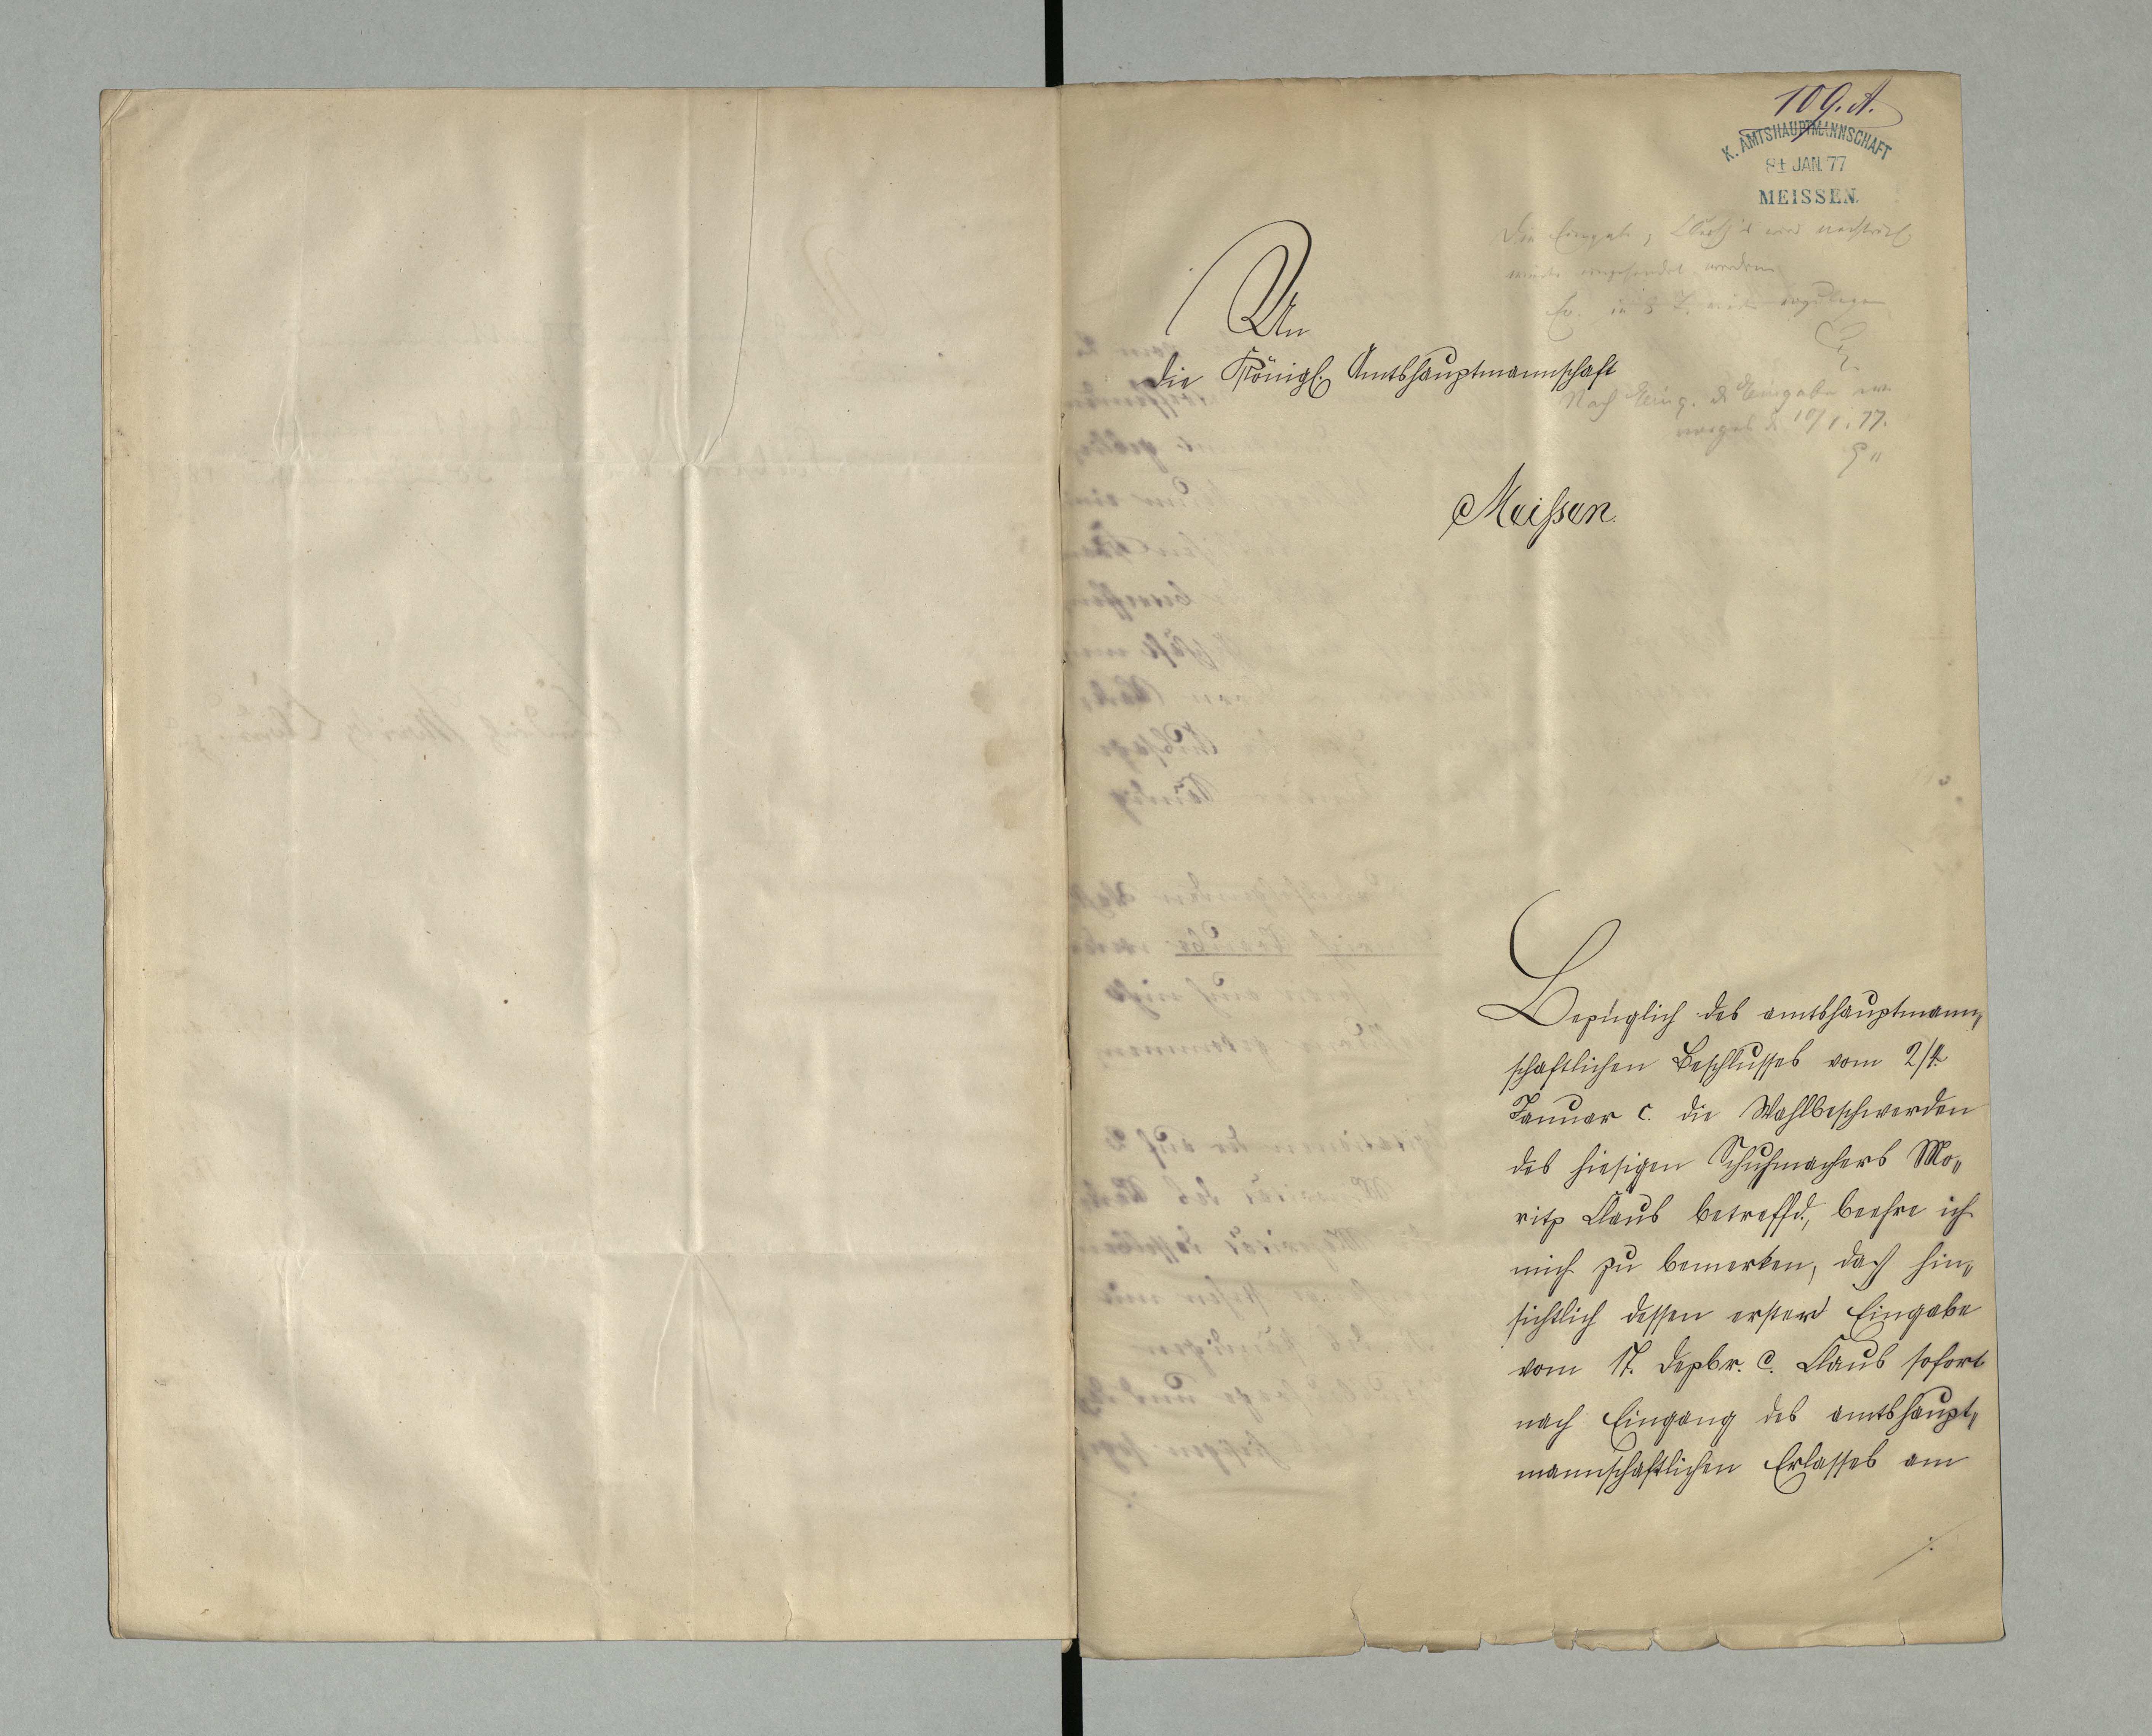 109.A.
K. AMTSHAUPTMANNSCHAFT
JAN. 77
MEISSEN.
Die Eingabe
eingesendet werden
An
die Königl. Amtshauptmannschaft
Nach Eing. d. Eingabe
10/1. 77.
Meißen.
Bezüglich des amtshauptmann„
schaftlichen Beschlusses vom 2/4.
Januar c. die Wahlbeschwerden
des hiesigen Schuhmachers Mo„
ritz Claus betreffd., beehre ich
mich zu bemerken, daß hin„
sichtlich dessen erster Eingabe
vom 17. Dezbr. c. Claus sofort
nach Eingang des amtshaupt„
mannschaftlichen Erlasses am